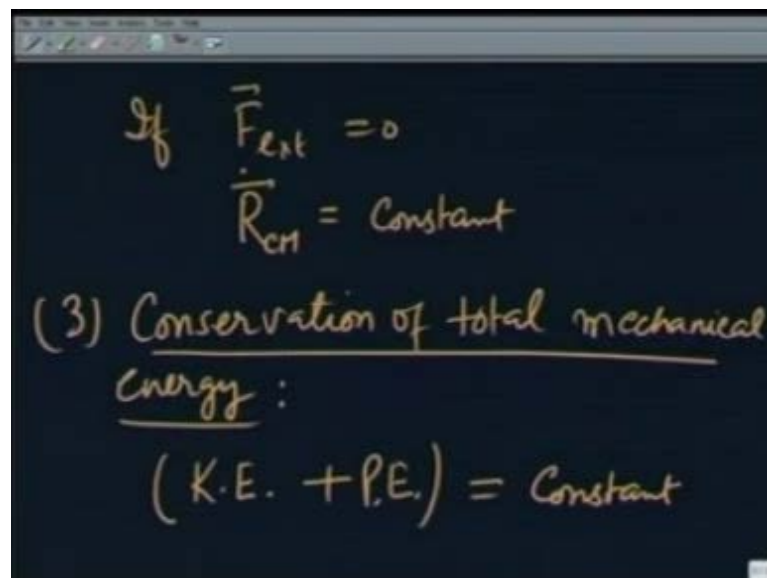 If F⃗ext = 0
Ṙ⃗CM = Constant
(3) Conservation of total mechanical
energy :
(K.E. + P.E.) = Constant